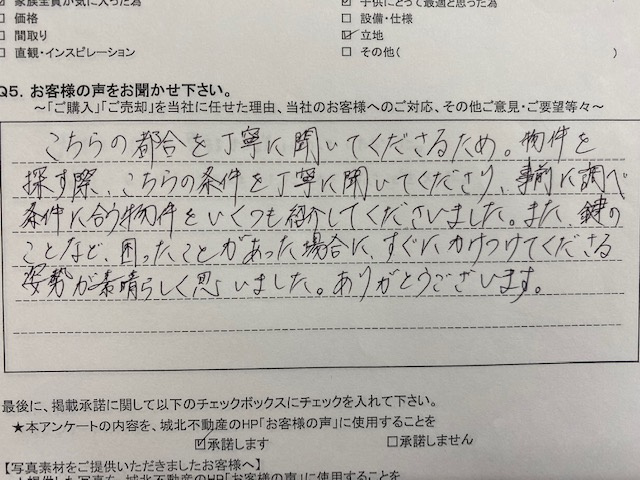 ☑家族全員が気に入った為 ☑子供にとって最適と思った為
□価格 □設備・仕様
□間取り ☑立地
□直観・インスピレーション □その他( )
Q5．お客様の声をお聞かせ下さい。
～「ご購入」「ご売却」を当社に任せた理由、当社のお客様へのご対応、その他ご意見・ご要望等々～
こちらの都合を丁寧に聞いてくださるため。物件を
探す際、こちらの条件を丁寧に聞いてくださり、事前に調べ
条件に合う物件をいくつも紹介してくださいました。また、鍵の
ことなど、困ったことがあった場合に、すぐにかけつけてくださる
姿勢が素晴らしく思いました。ありがとうございます。
最後に、掲載承諾に関して以下のチェックボックスにチェックを入れて下さい。
★本アンケートの内容を、城北不動産のHP「お客様の声」に使用することを
☑承諾します □承諾しません
【写真素材をご提供いただきましたお客様へ】
★提供した写真を、城北不動産のHP「お客様の声」に使用することを